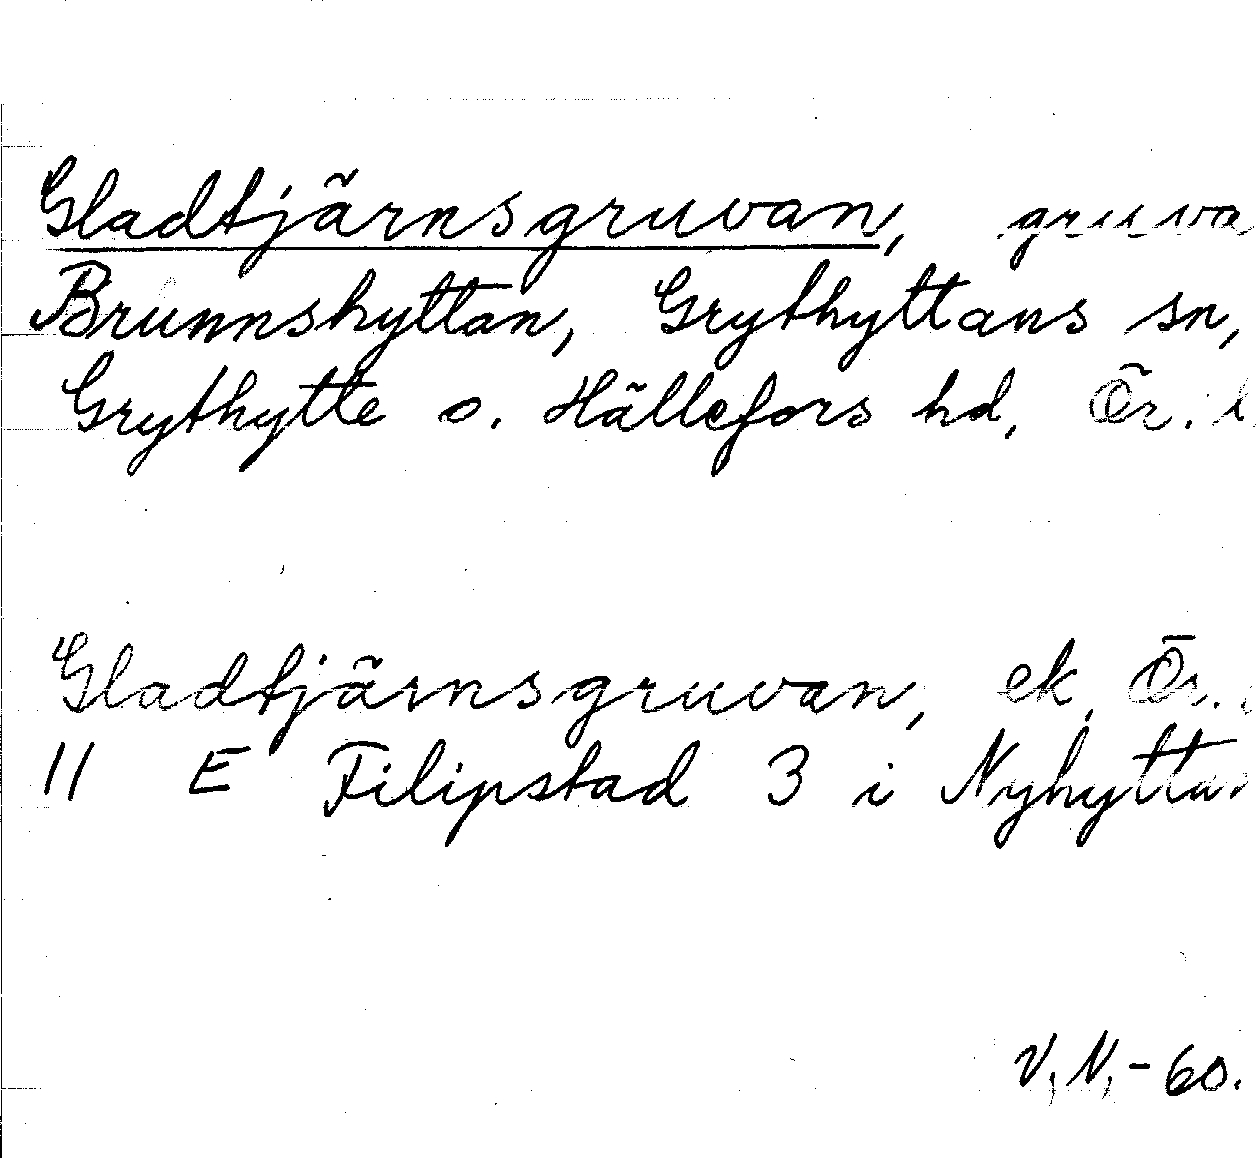 Gladtjärnsgruvan, gruva
Brunnshyttan, Grythyttans sn,
Grythytte o. Hällefors hd, Ör. l
Gladtjärnsgruvan, ek, Ör.
11 E Filipstad 3 i Nyhyttan
V.N.-60.